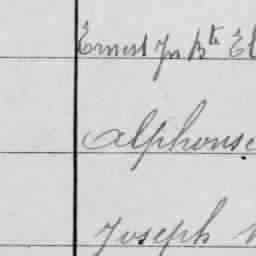 Ernest Jn Bte El
Alphonse
Joseph